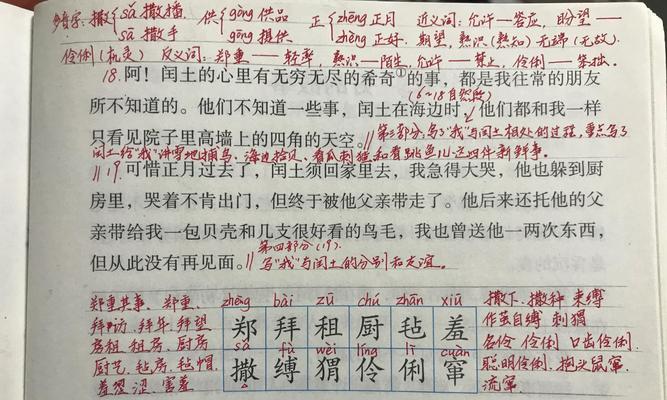 多音字：撒{sǎ 撒播 供{gōng供品 正{zhēng正月 近义词：允许—答应，盼望—
sā 撒手 gōng提供 zhèng正好. 期望，熟识（熟知）无端（无故）
伶俐（机灵） 反义词：郑重—轻率，熟识—陌生，允许—禁止，伶俐—笨拙.
18.阿！闰土的心里有无穷无尽的希奇①的事，都是我往常的朋友
(6~18自然段)
所不知道的。他们不知道一些事，闰土在海边时，他们都和我一样
只看见院子里高墙上的四角的天空。//第三部分，写了“我”与闰土相处的过程，重点写了
闰土给“我”讲雪地捕鸟、海边拾贝、看瓜刺猹和看跳鱼儿这四件新鲜事.
//19.可惜正月过去了，闰土须回家里去，我急得大哭，他也躲到厨
房里，哭着不肯出门，但终于被他父亲带走了。他后来还托他的父
亲带给我一包贝壳和几支很好看的鸟毛，我也曾送他一两次东西，
第四部分(19).
但从此没有再见面。//写“我”与闰土的分别和友谊.
郑重其事、郑重、 zhèng bài zū chú zhān xiū 撒下、撒种 束缚
拜访、拜年、拜望 郑 拜 租 厨 毡 羞 作茧自缚 刺猬
房租、租房、厨房 sǎ fù wèi líng lì cuàn 名伶 伶俐、口齿伶俐、
厨艺、毡房、毡帽 撒 缚 猬 伶 俐 窜 聪明伶俐、抱头鼠窜
羞涩、害羞 流窜.